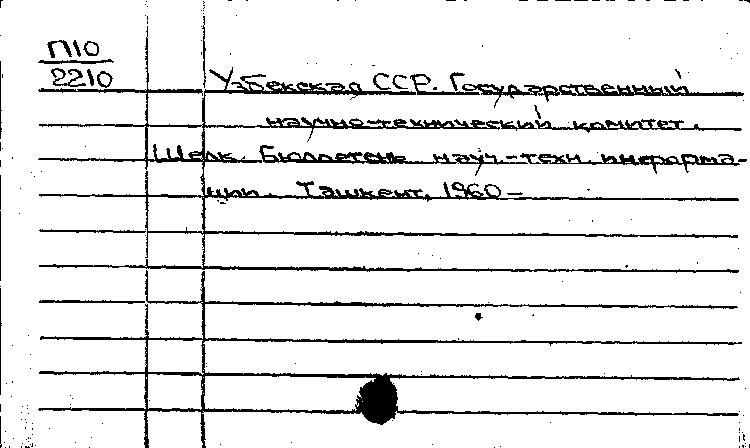 П10
2210
Узбекская ССР. Государственный
научно-технический комитет.
Шелк. Бюллетень науч.-техн. информа-
ции. Ташкент, 1960 –